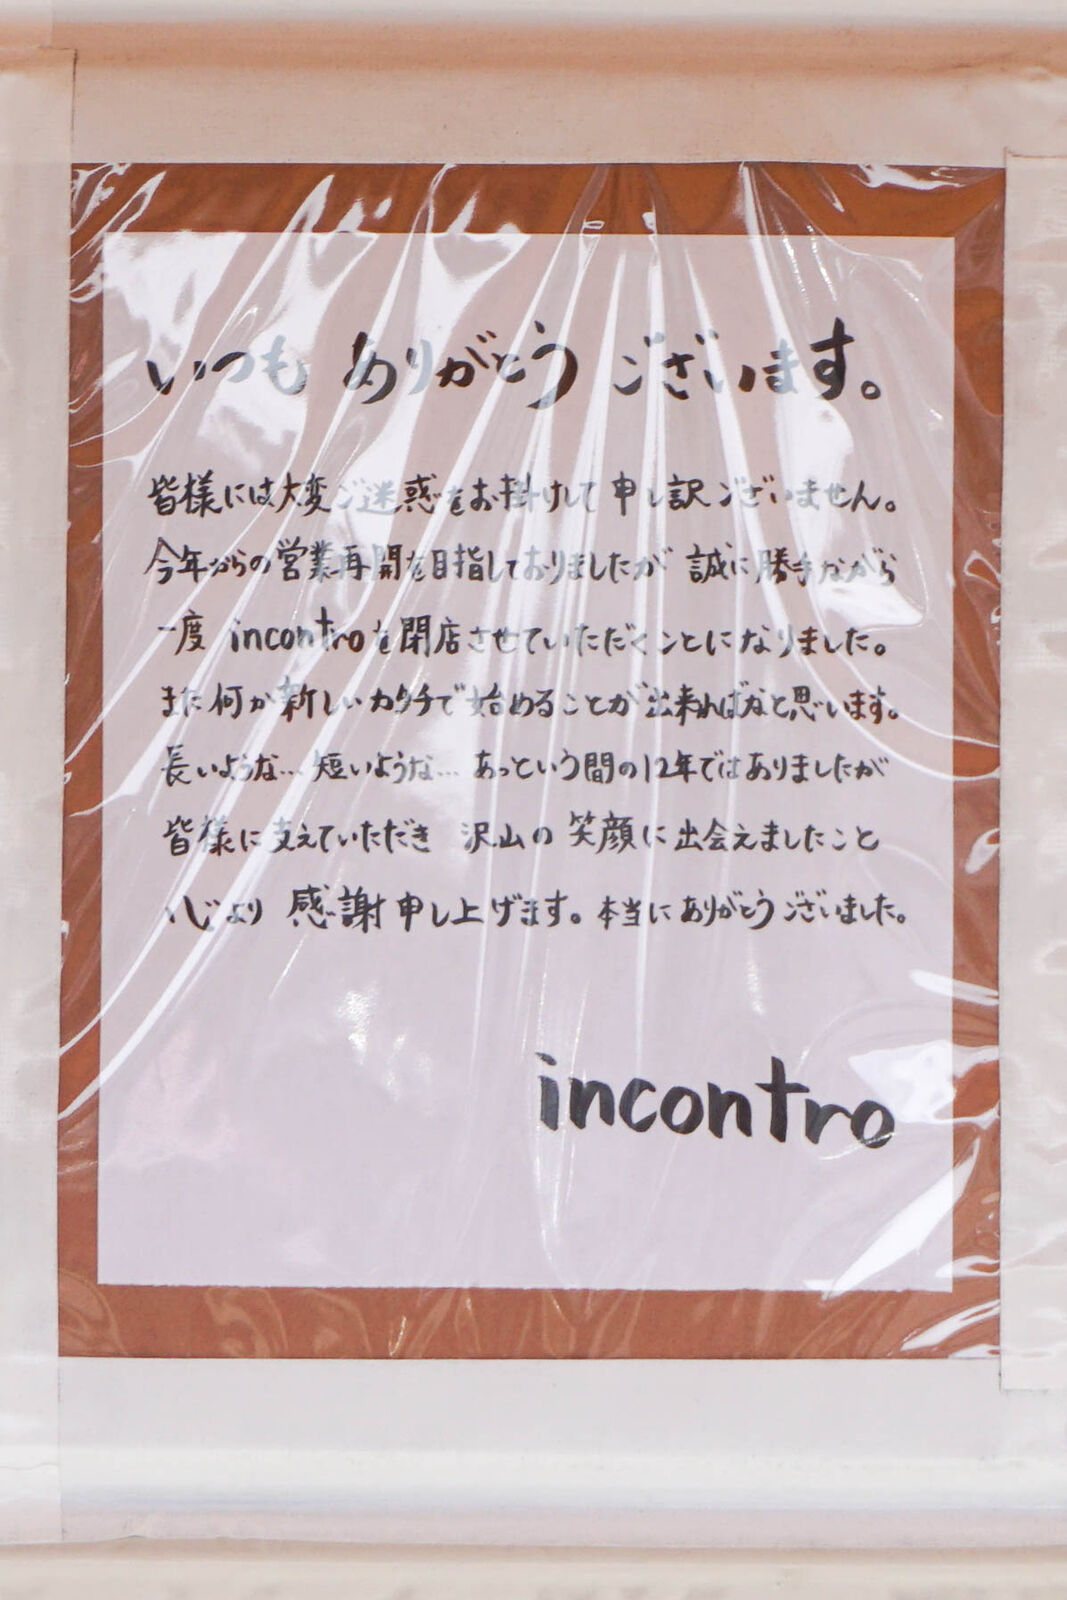 いつも ありがとう ございます。
皆様には大変ご迷惑をお掛けして 申し訳ございません。
今年からの営業再開を目指しておりましたが 誠に勝手ながら
一度 incontroを閉店させていただくことになりました。
また何か新しいカタチで始めることが出来ればなと思います。
長いような… 短いような… あっという間の12年ではありましたが
皆様に支えていただき 沢山の 笑顔に出会えましたこと
心より 感謝申し上げます。本当にありがとうございました。
incontro